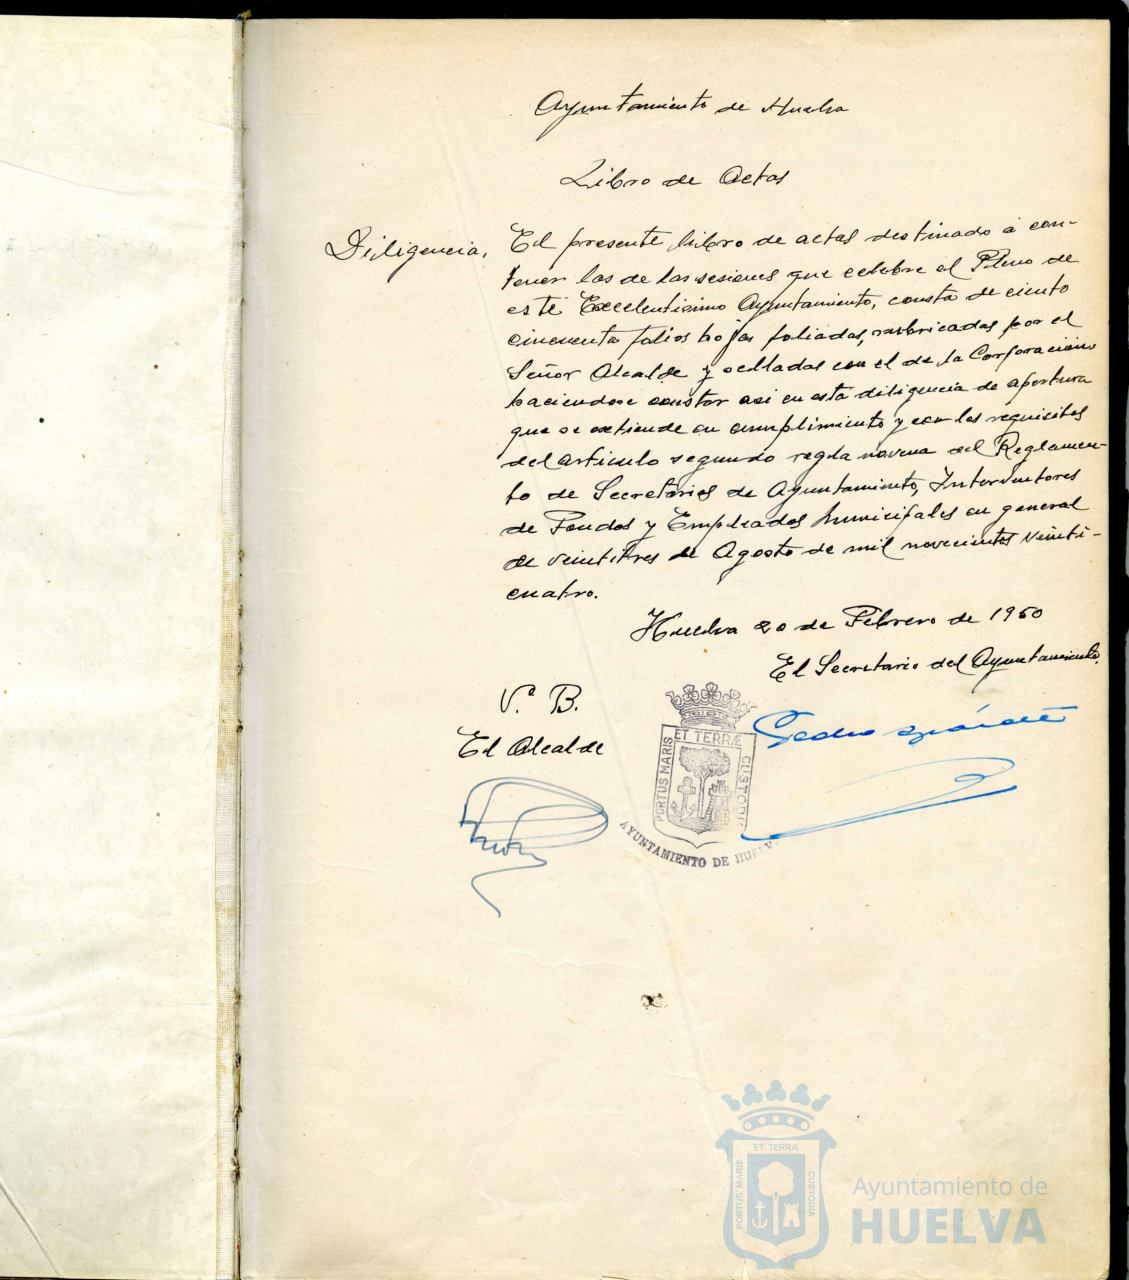 Ayuntamiento de Huelva
Libro de Actas
Diligencia,
El presente libro de actas destinado á con-
tener las de las sesiones que celebre el Pleno de
este Excelentisimo Ayuntamiento, consta de ciento
cincuenta folios hojas foliadas, rubricadas por el
Señor Alcalde y selladas con el de la Corporación
haciendose constar asi en esta diligencia de apertura
que se extiende en cumplimiento y con los requisitos
del articulo segundo regla novena del Reglamen-
to de Secretarios de Ayuntamiento, Interventores
de Fondos y Empleados Municipales en general
de veintitres de Agosto de mil novecientos veinti-
cuatro.
Huelva 20 de Febrero de 1950
El Secretario del Ayuntamiento.
V.º B.
El Alcalde
Pedro
PORTUS MARIS ET TERRÆ CUSTODIA
AYUNTAMIENTO DE HUELVA
PORTUS MARIS ET TERRÆ CUSTODIA
Ayuntamiento de
HUELVA